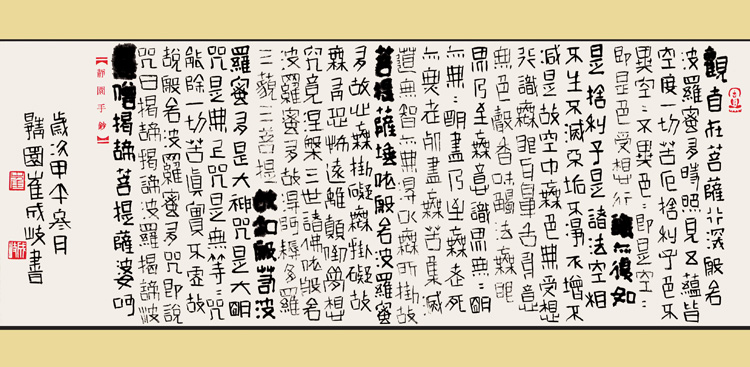 觀自在菩薩行深般若
波羅蜜多時照見五蘊皆
空度一切苦厄捨利子色不
異空=不異色=即是空=
即是色受想行識亦復如
是捨利子是諸法空相
不生不滅不垢不淨不增不
減是故空中無色無受想
行識無眼耳鼻舌身意
無色聲香味觸法無眼
界乃至無意識界無=明
無=明盡乃至無老死
亦無老死盡無苦集滅
道無智無得以無所得故
菩提薩埵依般若波羅蜜
多故心無掛礙無掛礙故
無有恐怖遠離顛倒夢想
究竟涅槃三世諸佛依般若
波羅蜜多故得阿耨多羅
三藐三菩提故知般若波
羅蜜多是大神咒是大明
咒是無上咒是無等=咒
能除一切苦真實不虛故
說般若波羅蜜多咒即說
咒曰揭諦揭諦波羅揭諦波
羅僧揭諦菩提薩婆呵
【靜園手鈔】
歲次甲午寒月
靜園崔成岐書